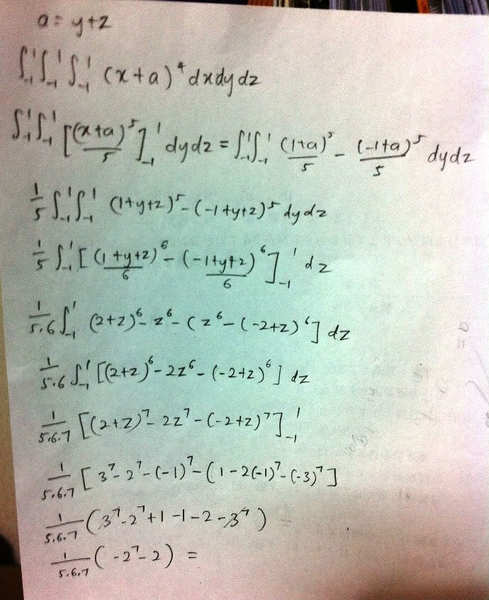 a = y+z
∫₋₁¹∫₋₁¹∫₋₁¹ (x+a)⁴ dxdydz
∫₋₁¹∫₋₁¹ [(x+a)⁵/5]₋₁¹ dydz = ∫₋₁¹∫₋₁¹ (1+a)⁵/5 - (-1+a)⁵/5 dydz
1/5 ∫₋₁¹∫₋₁¹ (1+y+z)⁵-(-1+y+z)⁵ dydz
1/5 ∫₋₁¹ [(1+y+z)⁶/6 - (-1+y+z)⁶/6]₋₁¹ dz
1/5.6 ∫₋₁¹ (2+z)⁶- z⁶ - (z⁶-(-2+z)⁶] dz
1/5.6 ∫₋₁¹ [(2+z)⁶-2z⁶-(-2+z)⁶] dz
1/5.6.7 [(2+z)⁷- 2z⁷-(-2+z)⁷]₋₁¹
1/5.6.7 [3⁷-2⁷-(-1)⁷-(1-2(-1)⁷-(-3)⁷]
1/5.6.7 (3⁷-2⁷+1-1-2-3⁷)
1/5.6.7 (-2⁷-2) =